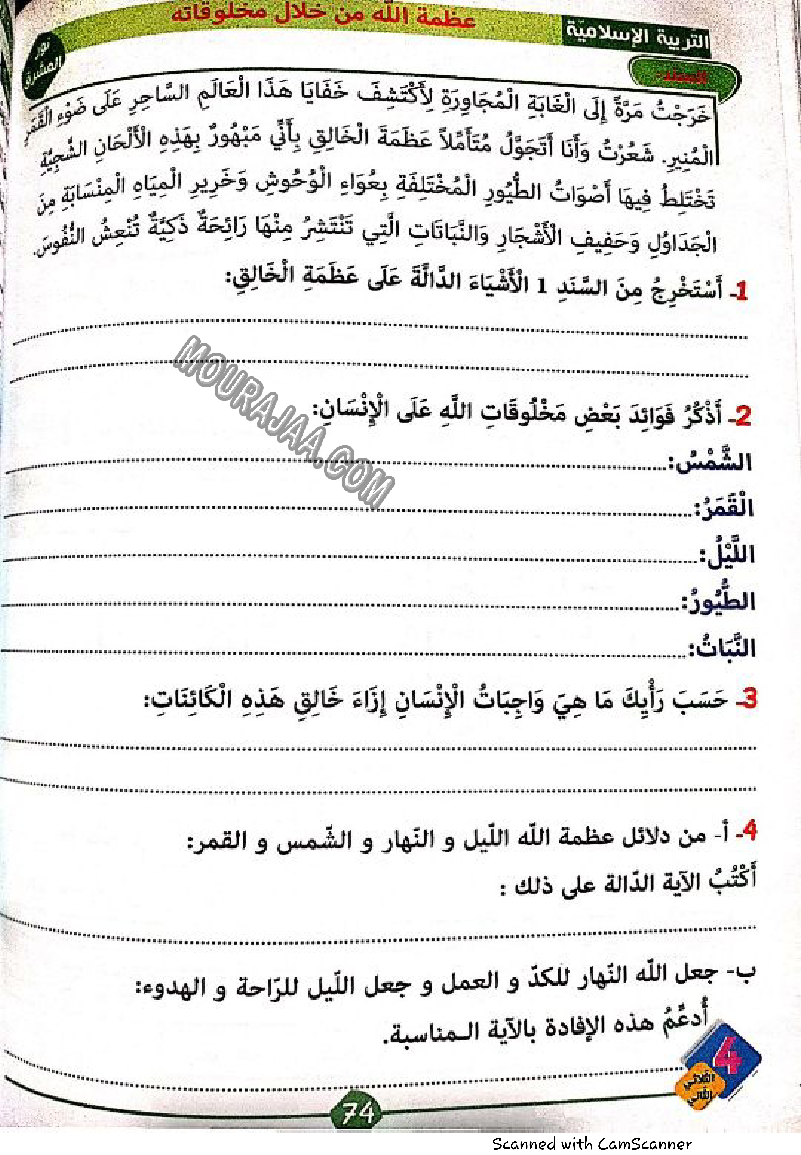 عظمة الله من خلال مخلوقاته
التربية الإسلامية
نور المشرق
السند:
خَرَجْتُ مَرَّةً إِلَى الْغَابَةِ الْمُجَاوِرَةِ لِأَكْتَشِفَ خَفَايَا هَذَا الْعَالَمِ السَّاحِرِ عَلَى ضَوْءِ الْقَمَرِ
الْمُنِيرِ. شَعُرْتُ وَأَنَا أَتَجَوَّلُ مُتَأَمِّلاً عَظَمَةَ الْخَالِقِ بِأَنِّي مَبْهُورٌ بِهَذِهِ الْأَلْحَانِ الشَّجِيَّةِ
تَخْتَلِطُ فِيهَا أَصْوَاتُ الطُّيُورِ الْمُخْتَلِفَةِ بِعُوَاءِ الْوُحُوشِ وَخَرِيرِ الْمِيَاهِ الْمِنْسَابَةِ مِنَ
الْجَدَاوِلِ وَحَفِيفِ الْأَشْجَارِ وَالنَّبَاتَاتِ الَّتِي تَنْتَشِرُ مِنْهَا رَائِحَةٌ ذَكِيَّةٌ تُنْعِشُ النُّفُوسَ.
1- أَسْتَخْرِجُ مِنَ السَّنَدِ 1 الْأَشْيَاءَ الدَّالَّةَ عَلَى عَظَمَةِ الْخَالِقِ:
MOURAJAA.COM
2- أَذْكُرُ فَوَائِدَ بَعْضِ مَخْلُوقَاتِ اللَّهِ عَلَى الْإِنْسَانِ:
الشَّمْسُ:
الْقَمَرُ:
اللَّيْلُ:
الطُّيُورُ:
النَّبَاتُ:
3- حَسَبَ رَأْيِكَ مَا هِيَ وَاجِبَاتُ الْإِنْسَانِ إِزَاءَ خَالِقِ هَذِهِ الْكَائِنَاتِ:
4- أ- من دلائل عظمة الله اللّيل و النّهار و الشّمس و القمر:
أَكْتُبُ الآية الدّالة على ذلك :
ب- جعل الله النّهار للكدّ و العمل و جعل اللّيل للرّاحة و الهدوء:
أُدعِّمُ هذه الإفادة بالآية الـمناسبة.
4
الثلاثي الثاني
74
Scanned with CamScanner